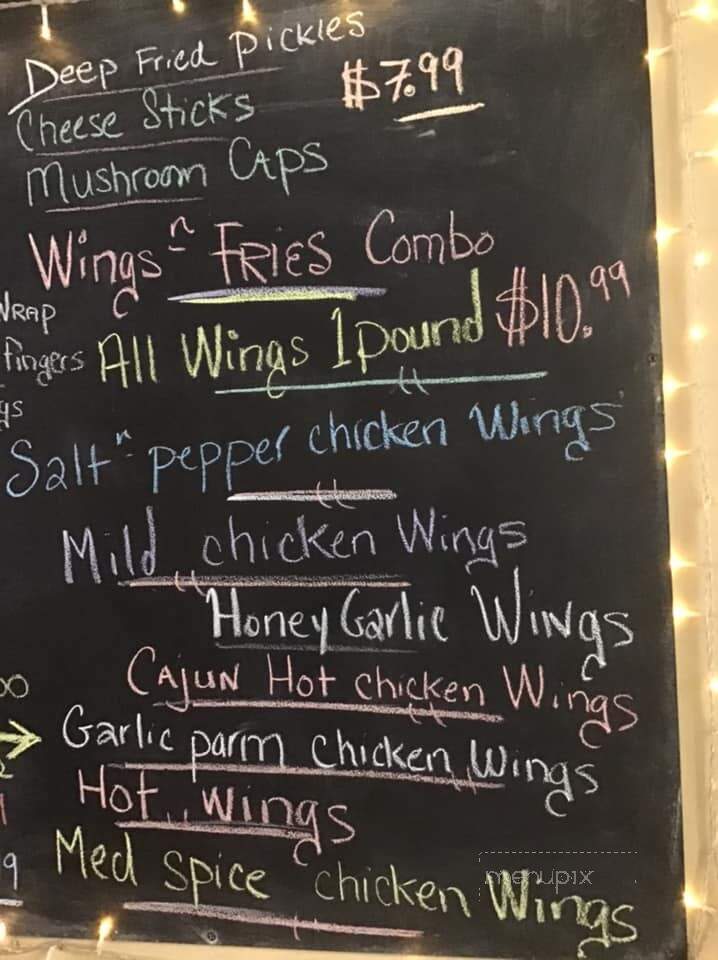 Deep Fried Pickles
$7.99
Cheese Sticks
Mushroom Caps
Wings n FRIES Combo
WRAP
All Wings 1 pound $10.99
fingers
Salt n pepper chicken Wings
Mild chicken Wings
Honey Garlic Wings
Cajun Hot chicken Wings
Garlic parm chicken Wings
Hot Wings
Med spice chicken Wings
menupix